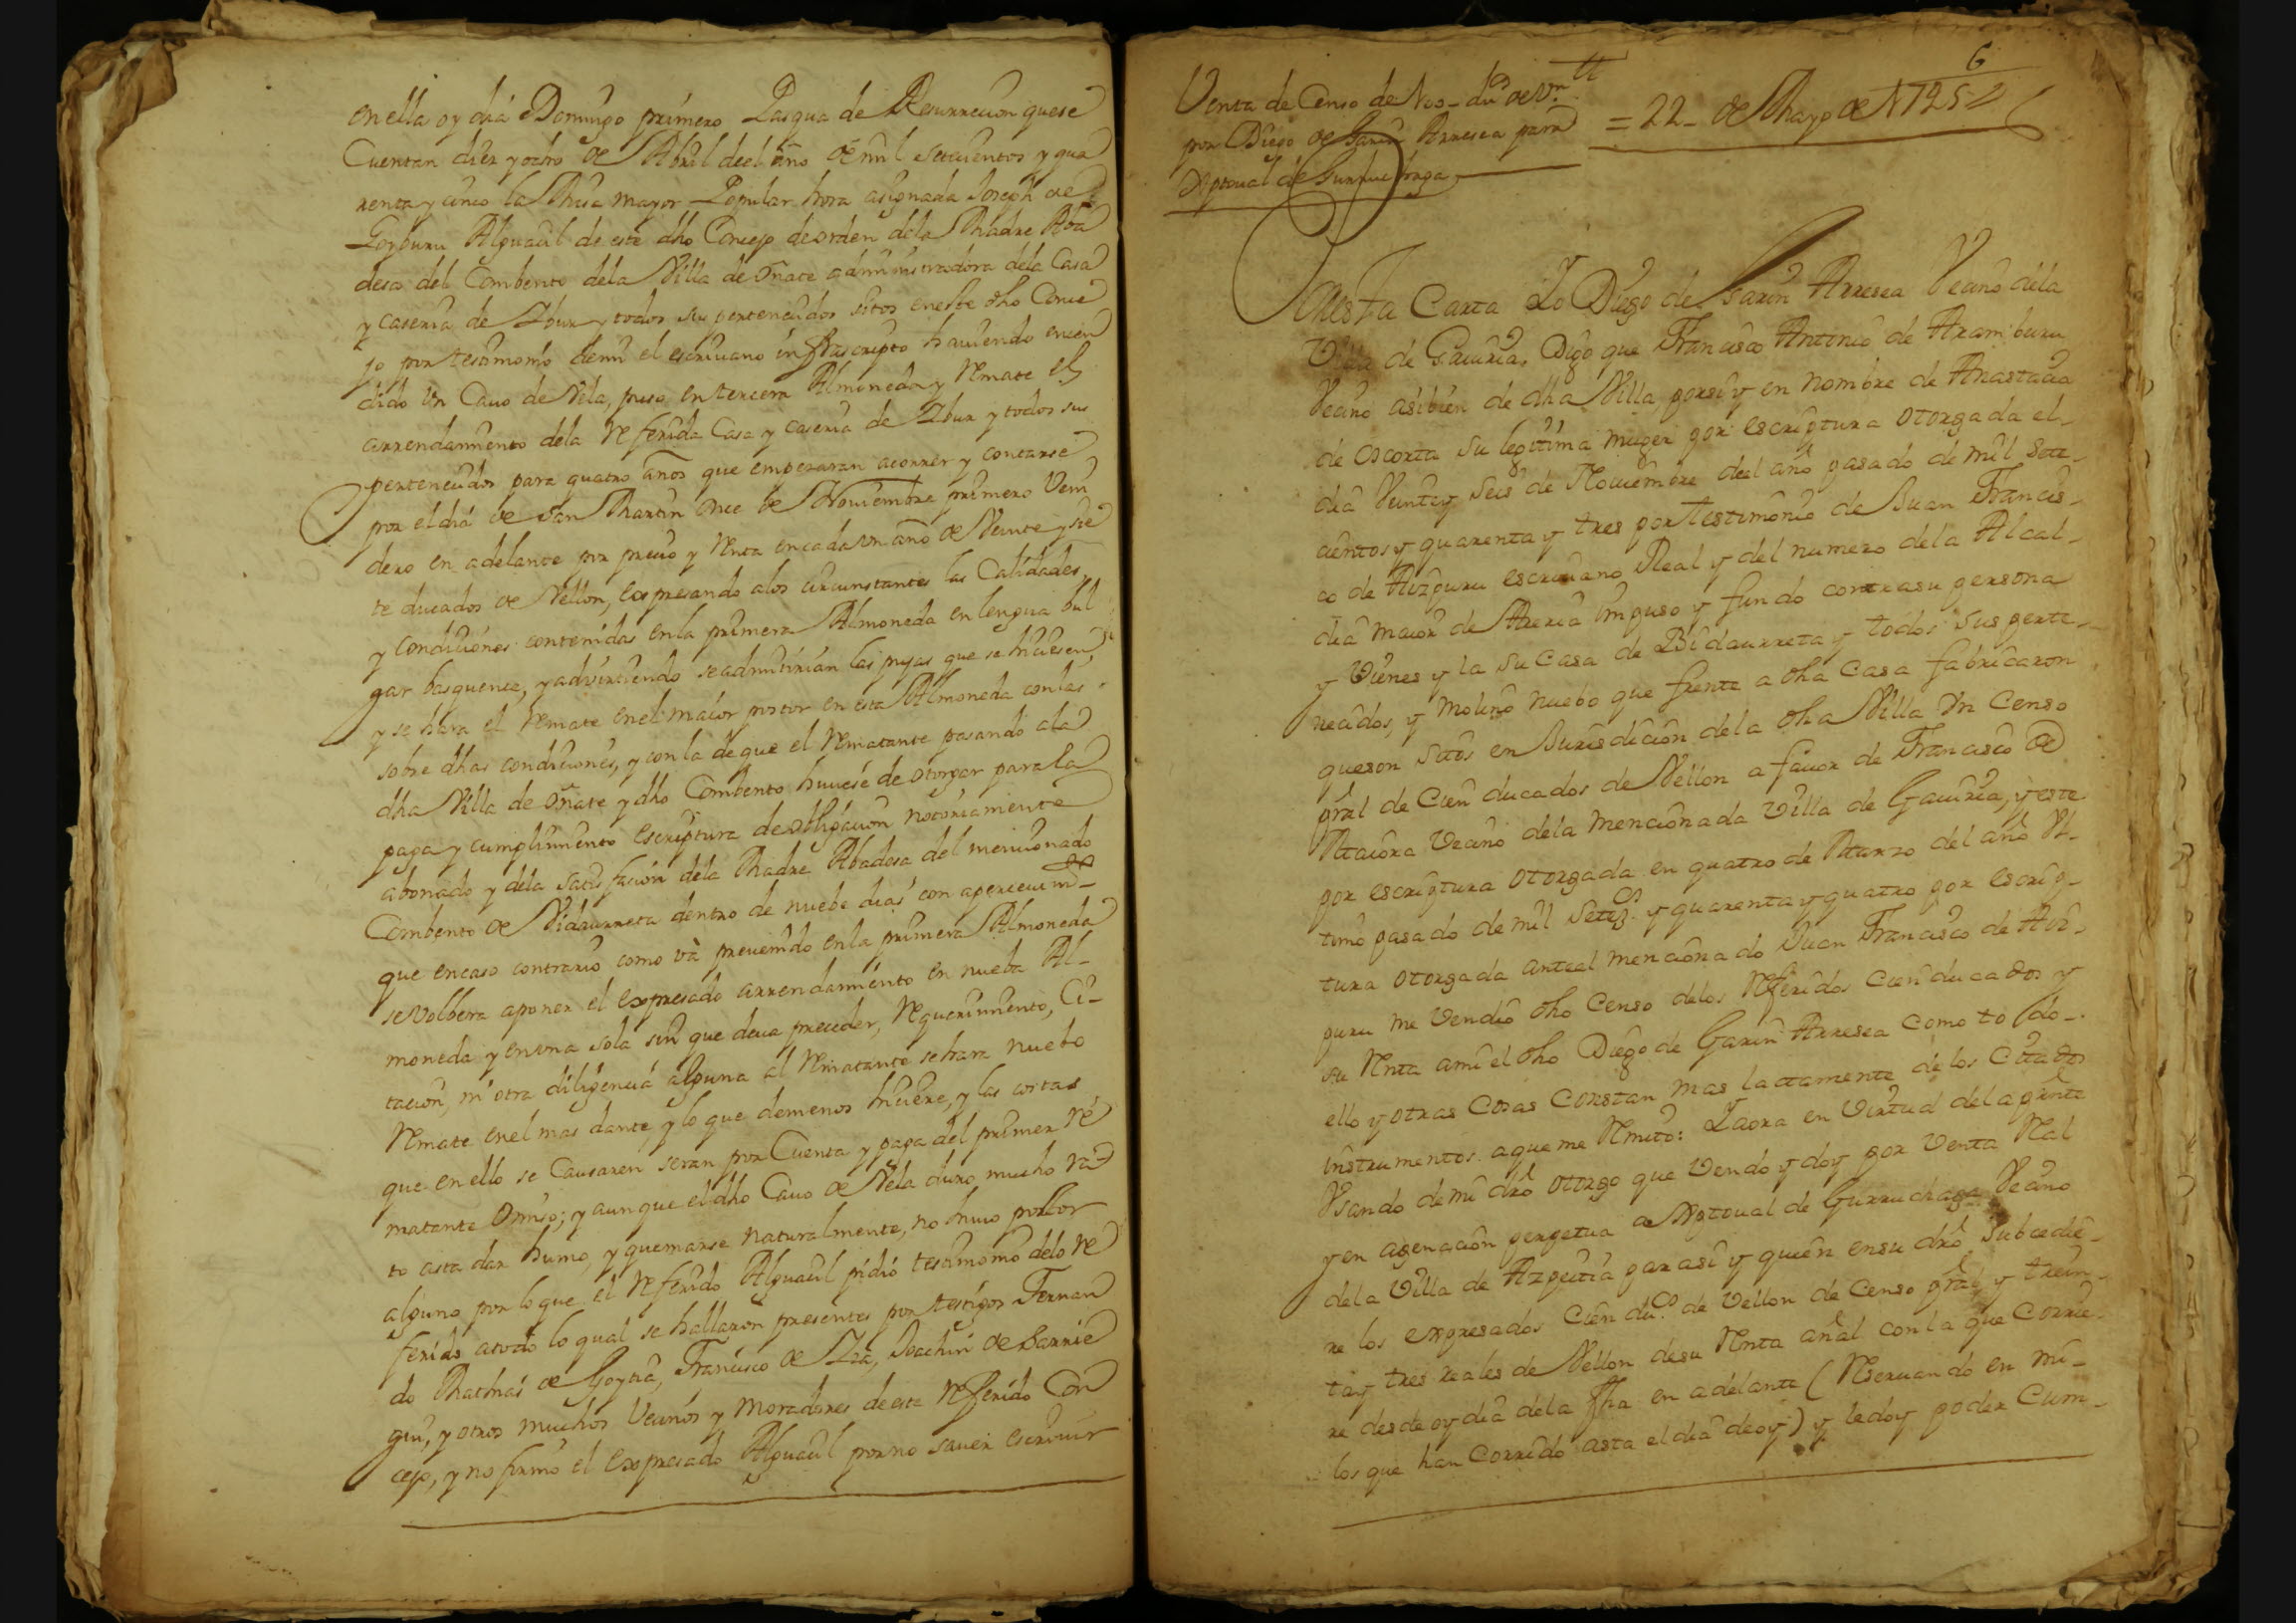 en ella oy dia Domingo primero Pasqua de Resurrecion que se
Cuentan diez y ocho de Abril deel año de mil setecientos y qua
renta y cinco la Misa mayor Popular hora asignada Joseph de
Goyburu Alguacil de este dho Concejo de orden dela Madre Aba
desa del Combento dela Villa de Oñate administradora dela Casa
y caseria de Zbur y todos sus pertenecidos sitos en este dho Conce
jo por testimonio demi el escriuano infrascripto hauiendo encen
dido un Cauo de Vela, puso en tercera Almoneda y Remate el
arrendamiento dela Referida Casa y caseria de Zbur y todos sus
pertenecidos para quatro años que empezaran acorrer y contarse
por el dia de San Martin once de Nouiembre primero Veni
dero en adelante por precio y Renta en cada un año de Veinte y sie
te ducados de Vellon, expresando alos circunstantes las Calidades
y condiciones contenidas en la primera Almoneda en lengua bul
gar basquence, y advirtiendo se admitirian las pujas que se hiciesen
y se hara el Remate en el maior postor en esta Almoneda con las
sobre dhas condiciones, y con la de que el Rematante pasando ala
dha Villa de Oñate y dho Combento huuiese de otorgar para la
paga y cumplimiento escriptura de obligacion notoriamente
abonado y dela satisfacion dela Madre Abadesa del mencionado
Combento de Vidaurreta dentro de nuebe dias con aperceuimto
que en caso contrario como và preuenido en la primera Almoneda
se volbera aponer el expresado arrendamiento en nueba Al-
moneda y en una sola sin que deua preceder, Requerimiento, Ci-
tacion, ni otra diligencia alguna al Rematante se hara nuebo
Remate en el mas dante, y lo que demenos hiciere, y las costas
que en ello se Causaren seran por Cuenta y paga del primer Re
matante Omiso; y aunque el dho Cauo de Vela duro mucho ra
to asta dar humo, y quemarse naturalmente, no huuo postor
alguno por lo que el Referido Alguacil pidió testimonio delo Re
ferido atodo lo qual se hallaron presentes por testigos Fernan
do Mathias de Goytia, Francisco de Zia, Joachin de Barrie
gui, y otros muchos Vecinos y Moradores de este Referido Con
cejo, y no firmó el expresado Alguacil por no sauer escriuir
6
Venta de Censo de 100 - dus de Vn.
por Diego de Garin Arresea para
Xptoual de Gurruchaga
= 22 - de Mayo de 1745
En esta Carta Yo Diego de Garin Arresea Vecino dela
Villa de Gauiria, Digo que Francisco Antonio de Aramburu
Vecino asibien de dha Villa porsi y en nombre de Anastacia
de Oscorta su legitima muger por escriptura otorgada el
dia Veinte y seis de Nouiembre deel año pasado de mil sete-
cientos y quarenta y tres por testimonio de Juan Francis-
co de Aizpuru escriuano Real y del numero dela Alcal-
dia maior de Areria impuso y fundo contra su persona
y Vienes y la su Casa de Bidaurreta y todos sus perte-
necidos, y Molino nuebo que frente a dha Casa fabricaron
que son sitos en Jurisdicion dela dha Villa Un Censo
gral de Cien ducados de Vellon a fauor de Francisco de
Maiora Vecino dela mencionada Villa de Gauiria, y este
por escriptura otorgada en quatro de Marzo del año Ul-
timo pasado de mil setezs y quarenta y quatro por escrip-
tura otorgada anteel mencionado Juan Francisco de Aiz-
puru me Vendio dho Censo delos Referidos Cien ducados y
su Renta ami el dho Diego de Garin Arresea como todo
ello y otras Cosas constan mas lactamente de los Citados
instrumentos aque me Remito: Y aora en Virtud dela prnte
Usando de mi dro otorgo que Vendo y doy por Venta Real
y en agenacion perpetua a Xptoual de Gurruchaga Vecino
dela Villa de Azpeitia para si y quien en su dro subcedie-
re los expresados Cien dus. de Vellon de Censo gral, y trein-
ta y tres reales de Vellon de su Renta añal con la que Corrie-
re desde oy dia dela fha en adelante (Reseruando en mi
los que han Corrido asta el dia de oy) y le doy poder Cum-